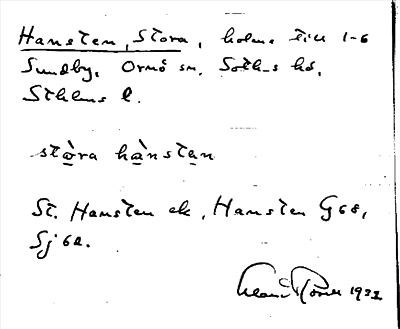 Hansten, Stora, holme till 1-6
Sundby, Ornö sn, Soth-s hd,
Sthlms l.
stòra hànstan
St. Hansten ek, Hansten G68,
Sj 62.
1932